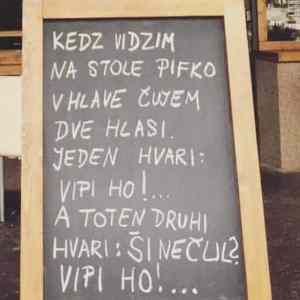 KEDZ VIDZIM
NA STOLE PIFKO
V HLAVE ČUJEM
DVE HLASI.
JEDEN HVARI:
VIPI HO!...
A TOTEN DRUHI
HVARI: ŠI NEČUL?
VIPI HO!...